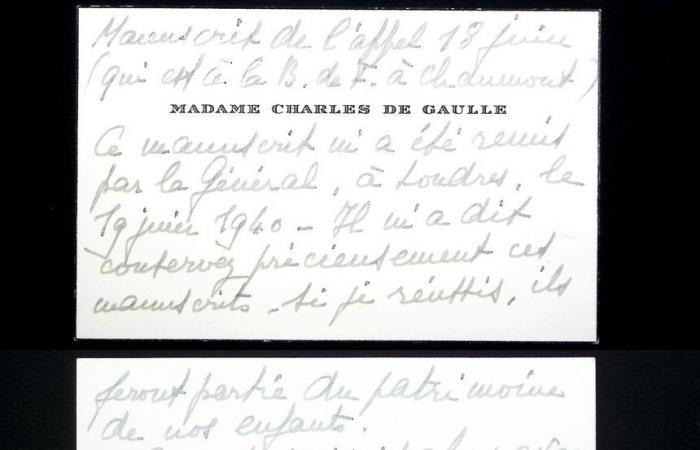 Manuscrit de l'appel 18 juin
(qui est à la B. de F. à Chaumont)
MADAME CHARLES DE GAULLE
Ce manuscrit m'a été remis
par le Général, à Londres, le
19 juin 1940 - Il m'a dit
"conservez précieusement ces
manuscrits - si je réussis, ils
feront partie du patrimoine
de nos enfants.